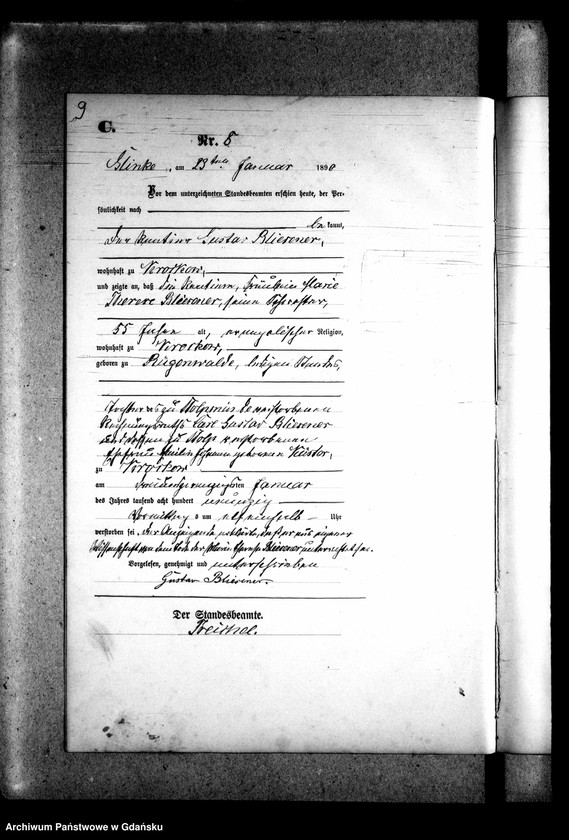 9
C.
Nr. 8
Glinke, am 23ten Januar 1890
Vor dem unterzeichneten Standesbeamten erschien heute, der Per-
sönlichkeit nach
be kannt,
der Rentier Gustav Bliesener,
wohnhaft zu
und zeigte an, daß die Rentiere, Fräulein Marie
Therese Bliesener, seine Schwester,
55 Jahre alt, evangelischer Religion,
wohnhaft zu
geboren zu Rügenwalde,
Tochter des zu verstorbenen
Carl Gustav Bliesener
und dessen zu Stolp verstorbenen
Ehefrau geborenen
zu
am ten Januar
des Jahres tausend acht hundert neunzig
Vormittag s um Uhr
verstorben sei. Der Anzeigende erklärte, daß er aus eigener
Wissenschaft von dem Tode der Marie Therese Bliesener unterrichtet sei.
Vorgelesen, genehmigt und unterschrieben
Gustav Bliesener.
Der Standesbeamte.
Treichel.
Archiwum Państwowe w Gdańsku